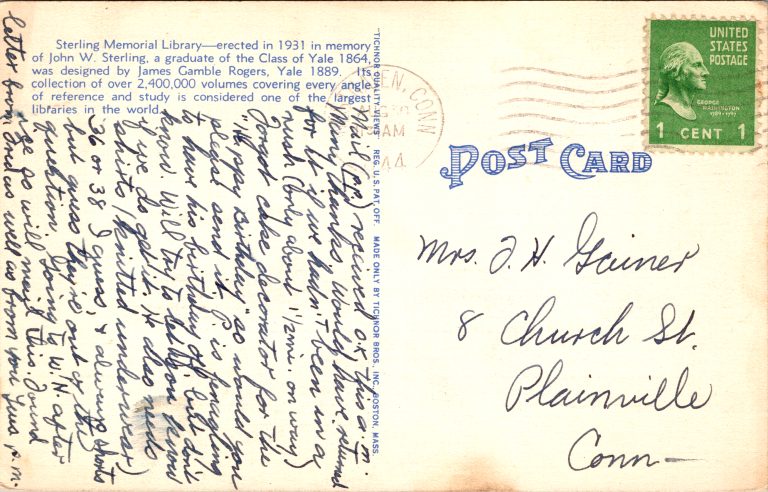 Sterling Memorial Library—erected in 1931 in memory
of John W. Sterling, a graduate of the Class of Yale 1864,
was designed by James Gamble Rogers, Yale 1889. Its
collection of over 2,400,000 volumes covering every angle
of reference and study is considered one of the largest
libraries in the world.
"TICHNOR QUALITY VIEWS" REG. U. S. PAT. OFF. MADE ONLY BY TICHNOR BROS. INC., BOSTON, MASS.
EN, CONN
AM
44
UNITED
STATES
POSTAGE
GEORGE
WASHINGTON
1789-1797
1 CENT 1
POST CARD
Mrs. J. H. Gainer
8 Church St.
Plainville
Conn—
Mail received o.k. this a.m.
Many thanks. Would have returned
for it if we hadn't been in a
rush (only about 1/2 mi. on way)
Forgot cake decorator for the
"Happy Birthday" so would you
please send it. P is
to have his birthday off but don't
know. Will try to let you know
if we do get it. He also needs
shirts (knitted underwear)
36 or 38 I guess, + always shorts
but guess they're out of the
question. Going to W. H. after
g. so will mail this. Found
letter from as well as from you yes. p.m.